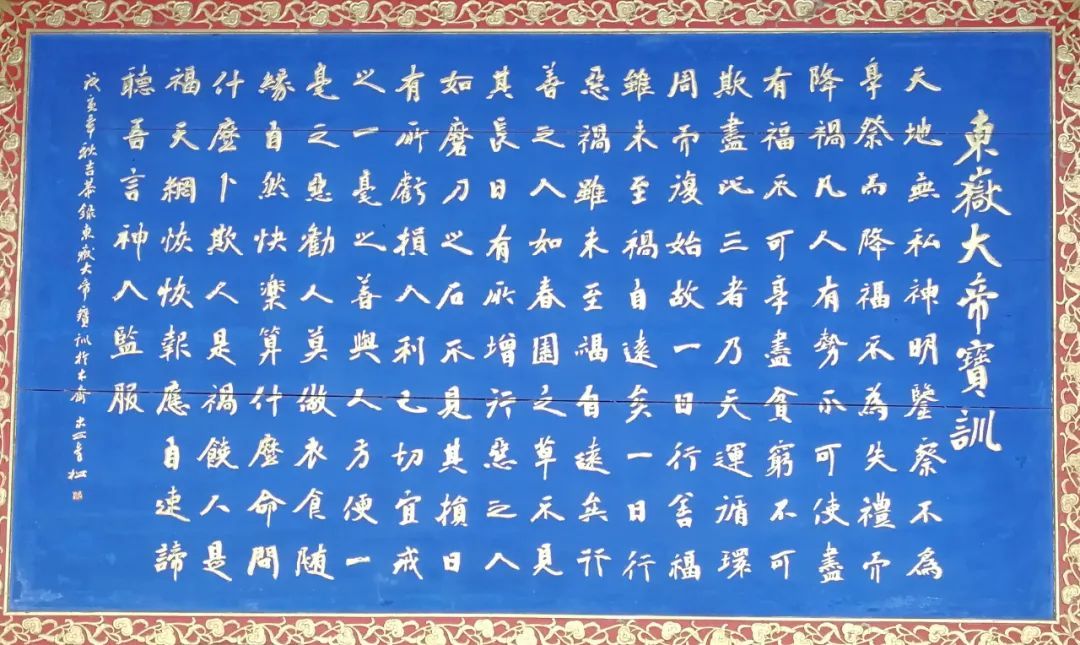 東嶽大帝寶訓
天地無私神明鑒察不為
享祭而降福不為失禮而
降禍凡人有勢不可使盡
有福不可享盡貧窮不可
欺盡此三者乃天運循環
周而復始故一日行善福
雖未至禍自遠矣一日行
惡禍雖未至福自遠矣行
善之人如春園之草不見
其長日有所增行惡之人
如磨刀之石不見其損日
有所虧損人利己切宜戒
之一毫之善與人方便一
毫之惡勸人莫做衣食随
緣自然快樂算什麼命問
什麼卜欺人是禍饒人是
福天網恢恢報應自速諦
聽吾言神人監服
年秋吉恭錄東嶽大帝寶訓於木齋